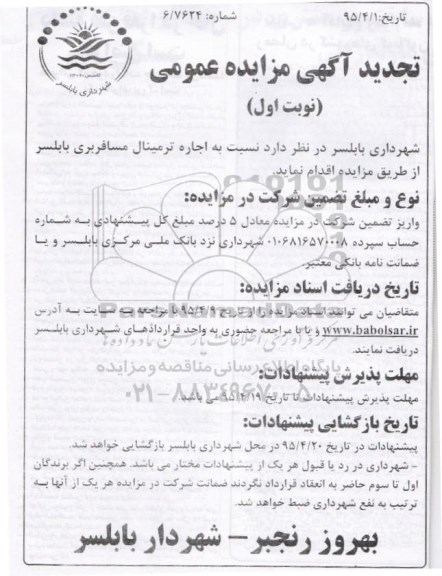 تاریخ: ۹۵/۴/۱
شماره: ۶/۷۶۲۴
شهرداری بابلسر
تجدید آگهی مزایده عمومی
(نوبت اول)
شهرداری بابلسر در نظر دارد نسبت به اجاره ترمینال مسافربری بابلسر
از طریق مزایده اقدام نماید.
نوع و مبلغ تضمین شرکت در مزایده:
واریز تضمین شرکت در مزایده معادل ۵ درصد مبلغ کل پیشنهادی به شماره
حساب سپرده ۰۱۰۶۸۱۶۵۷۰۰۰۸ شهرداری نزد بانک ملی مرکزی بابلسر و یا
ضمانت نامه بانکی معتبر.
تاریخ دریافت اسناد مزایده:
متقاضیان می توانند اسناد مزایده را از تاریخ ۹۵/۴/۹ با مراجعه به سایت به آدرس
www.babolsar.ir و یا با مراجعه حضوری به واحد قراردادهای شهرداری بابلسر
دریافت نمایند.
پایگاه اطلاع رسانی مناقصه و مزایده
مهلت پذیرش پیشنهادات:
مهلت پذیرش پیشنهادات تا تاریخ ۹۵/۴/۱۹ می باشد.
تاریخ بازگشایی پیشنهادات:
پیشنهادات در تاریخ ۹۵/۴/۲۰ در محل شهرداری بابلسر بازگشایی خواهد شد.
- شهرداری در رد یا قبول هر یک از پیشنهادات مختار می باشد. همچنین اگر برندگان
اول تا سوم حاضر به انعقاد قرارداد نگردند ضمانت شرکت در مزایده هر یک از آنها به
ترتیب به نفع شهرداری ضبط خواهد شد.
بهروز رنجبر – شهردار بابلسر